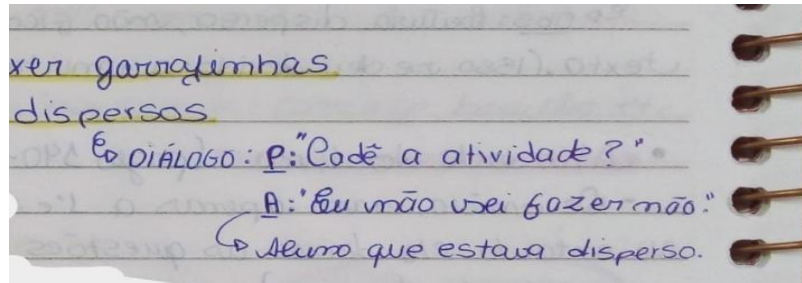 xer garrafinhas.
dispersos.
↳ DIÁLOGO: P: "Cadê a atividade?"
A: "Eu não sei fazer não."
↳ Aluno que estava disperso.